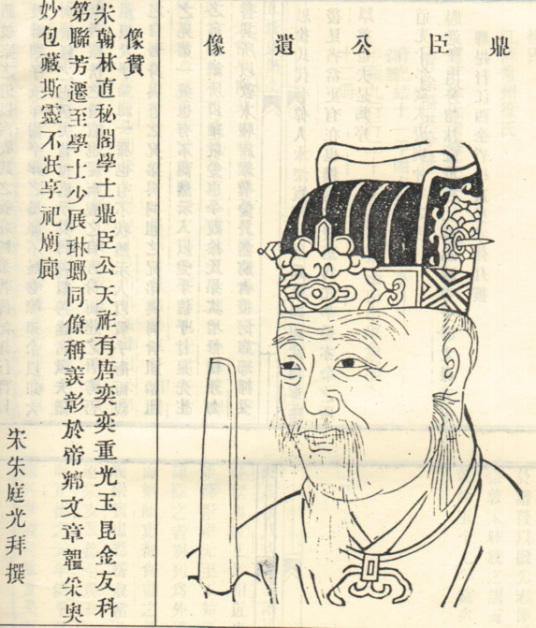 鼎臣公遺像
像贊
宋翰林直秘閣學士鼎臣公天祚有唐奕奕重光玉昆金友科
第聯芳遷至學士少展琳瑯同僚稱羨彰於帝鄉文章韞采奥
妙包藏斯靈不泯享祀廟廊
宋朱庭光拜撰